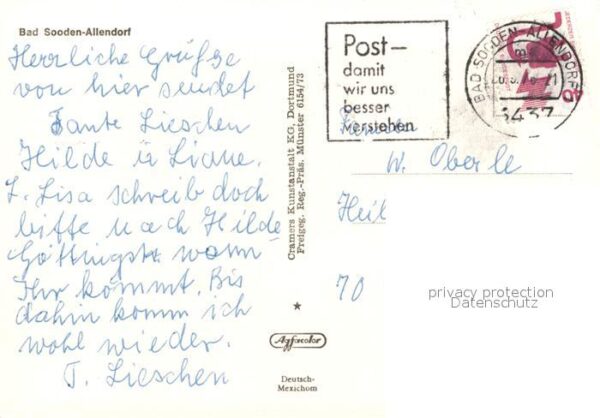 Bad Sooden-Allendorf
Herrliche Grüße
von hier sendet
Tante Lieschen
Hilde u Liane.
L. Lisa schreib doch
bitte nach Hilde
Göttingstr. wann
Ihr kommt. Bis
dahin komm ich
wohl wieder.
T. Lieschen
Cramers Kunstanstalt KG, Dortmund
Freigeg. Reg.-Präs. Münster 6154/73
Agfacolor
Deutsch-
Mexichom
Post–
damit
wir uns
besser
verstehen
BAD SOODEN-ALLENDORF
3437
W. Oberle
Heil
70
privacy protection
Datenschutz